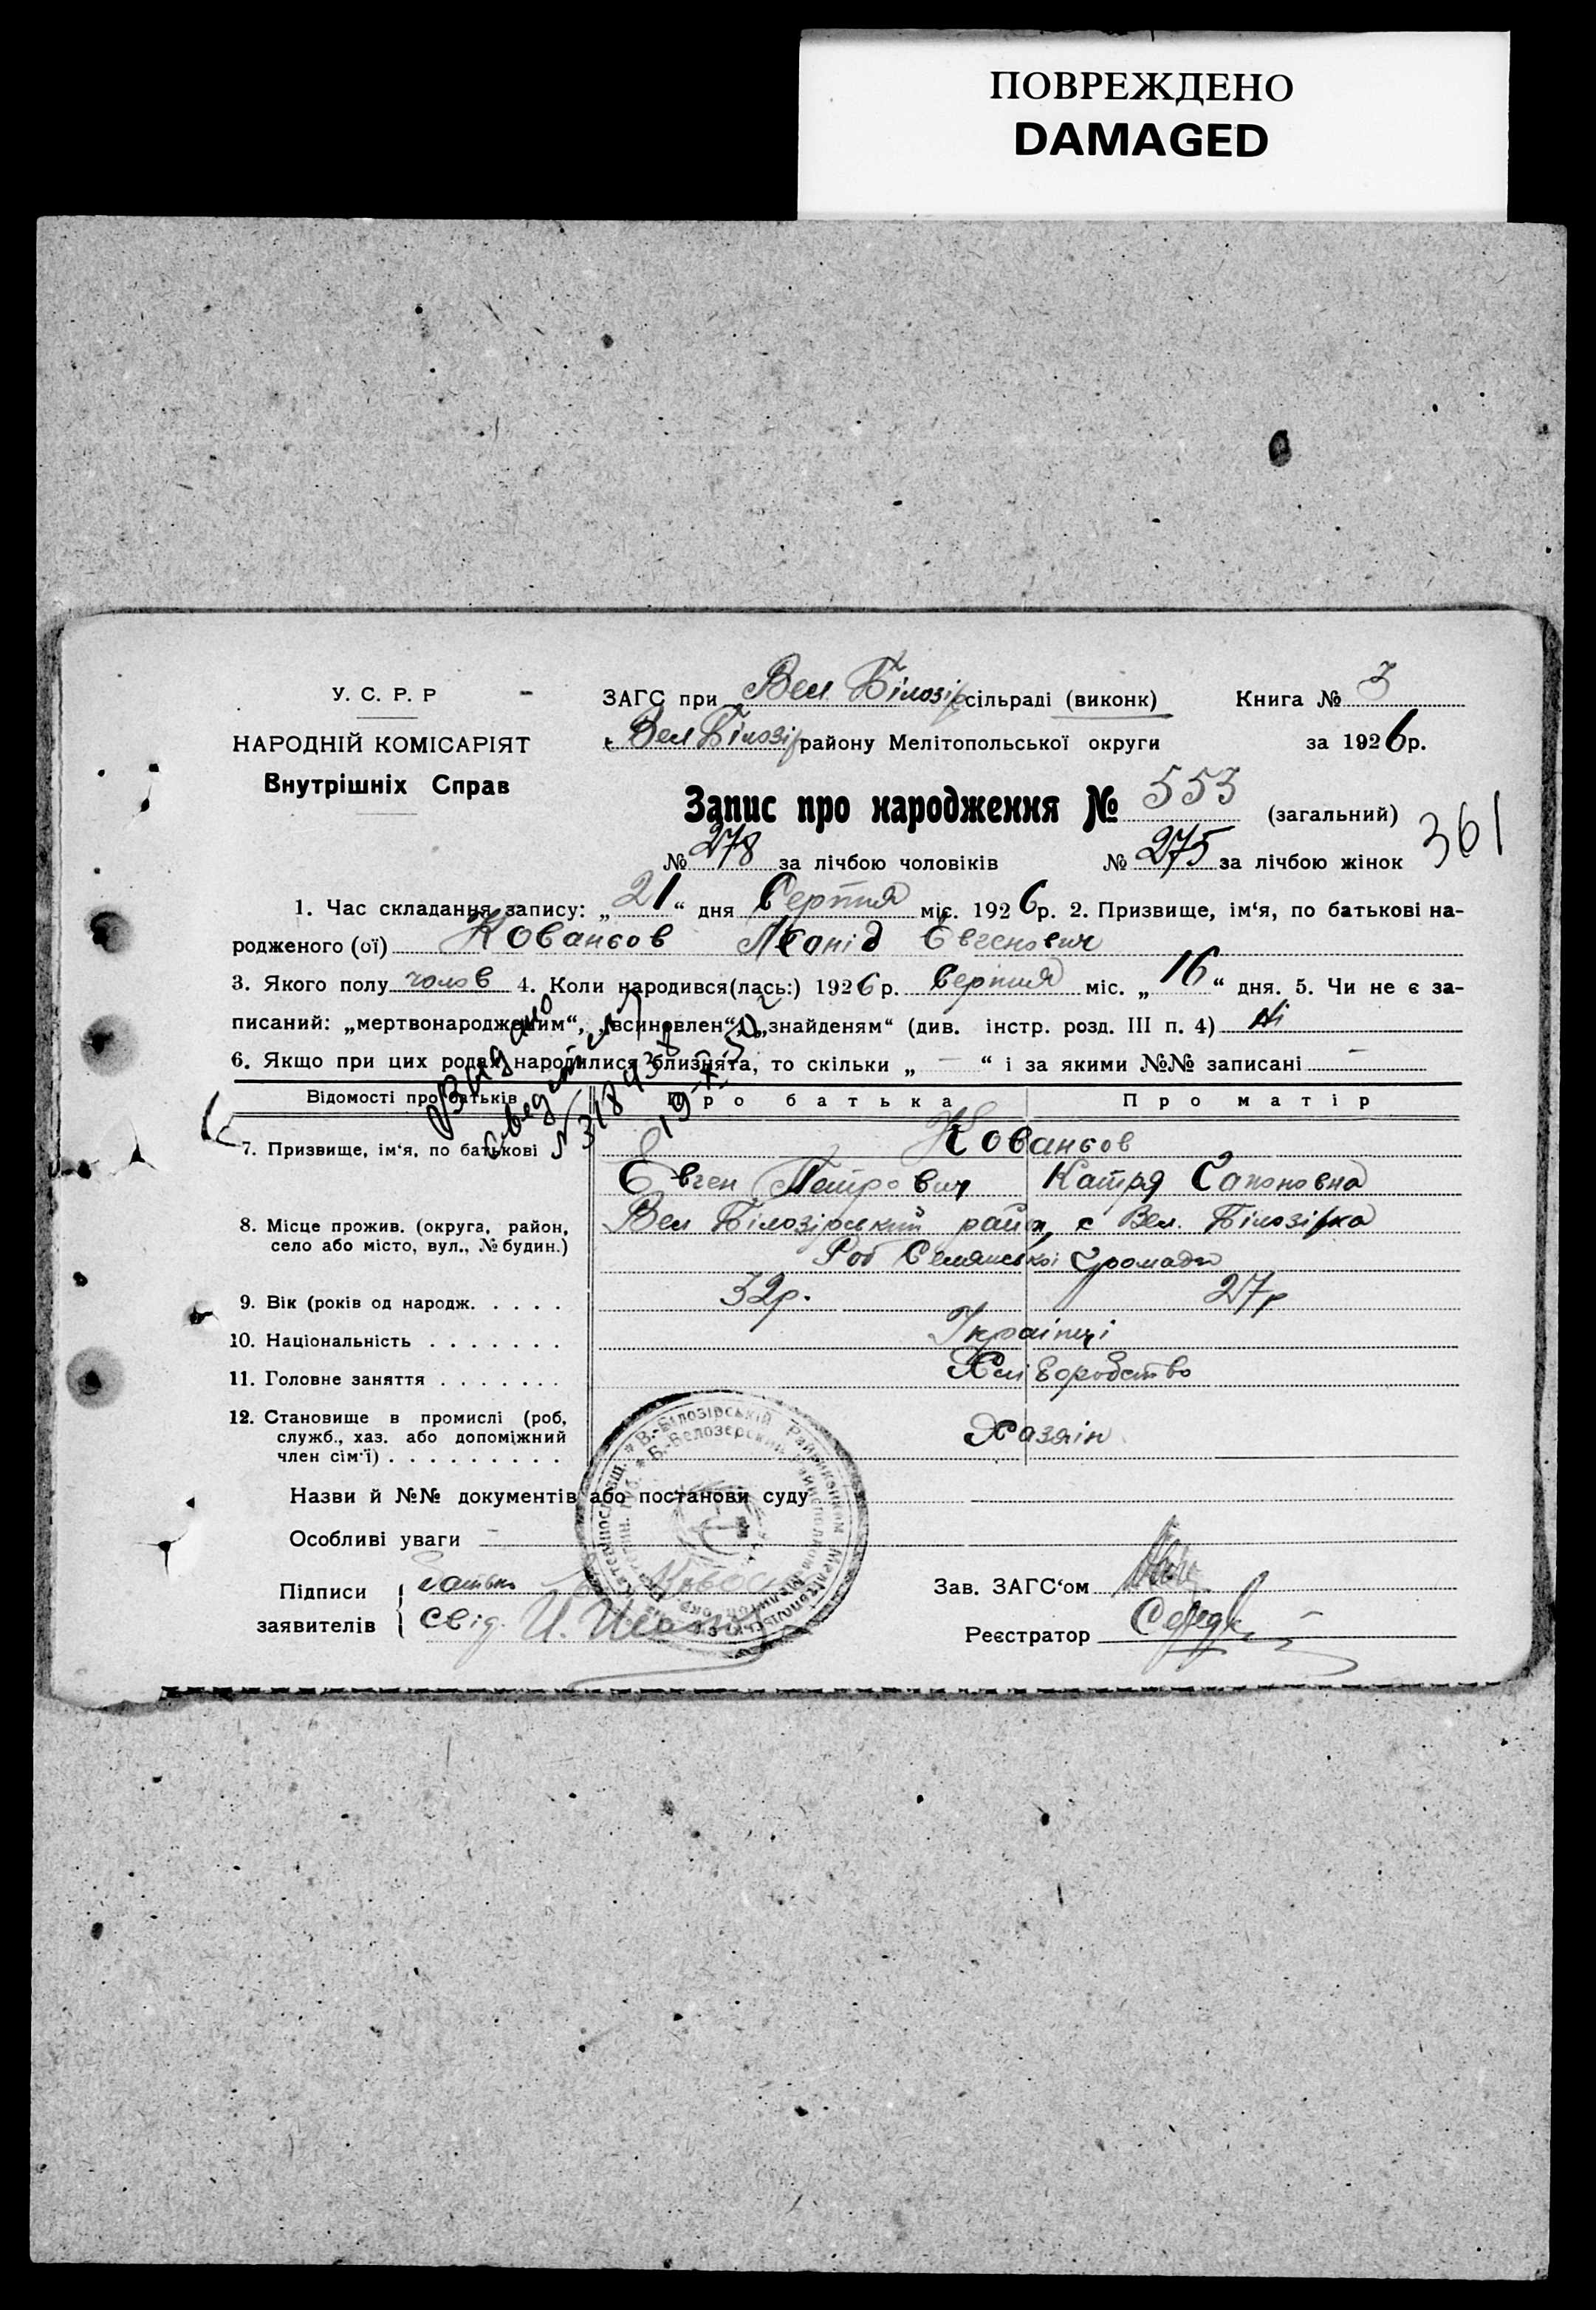 ПОВРЕЖДЕНО
DAMAGED
У. С. Р. Р
НАРОДНІЙ КОМІСАРІЯТ
Внутрішніх Справ
ЗАГС при Вел. Білозір сільраді (виконк)
Книга № 3
Вел Білозір району Мелітопольської округи
за 1926р.
Запис про народження № 553 (загальний)
361
№ 278 за лічбою чоловіків № 275 за лічбою жінок
1. Час складання запису: „21“ дня Серпня міс. 1926р. 2. Призвище, ім‘я, по батькові на-
родженого (ої) Кованьов Леонід Євгенович
3. Якого полу чолов 4. Коли народився(лась:) 1926р. Серпня міс. „16“ дня. 5. Чи не є за-
писаний: „мертвонародженим“, „всиновлен“, „знайденям“ (див. інстр. розд. III п. 4) Ні
6. Якщо при цих родах народилися близнята, то скільки „—“ і за якими №№ записані —
Видано
Відомості про батьків
Про батька
Про матір
7. Призвище, ім‘я, по батькові
Кованьов
Євген Петрович
Катря Сапоновна
8. Місце прожив. (округа, район,
село або місто, вул., № будин.)
Вел Білозірський район, с Вел. Білозірка
Громади
9. Вік (років од народж. . . . .
32р.
27р
10. Національність . . . . . . .
Українці
11. Головне заняття . . . . . . .
Хліборобство
12. Становище в промислі (роб,
служб., хаз. або допоміжний
член сім‘ї) . . . . . . . . .
Хазяїн
Назви й №№ документів або постанови суду
Особливі уваги —
Підписи
заявителів
батько
свід.
Зав. ЗАГС‘ом
Реєстратор